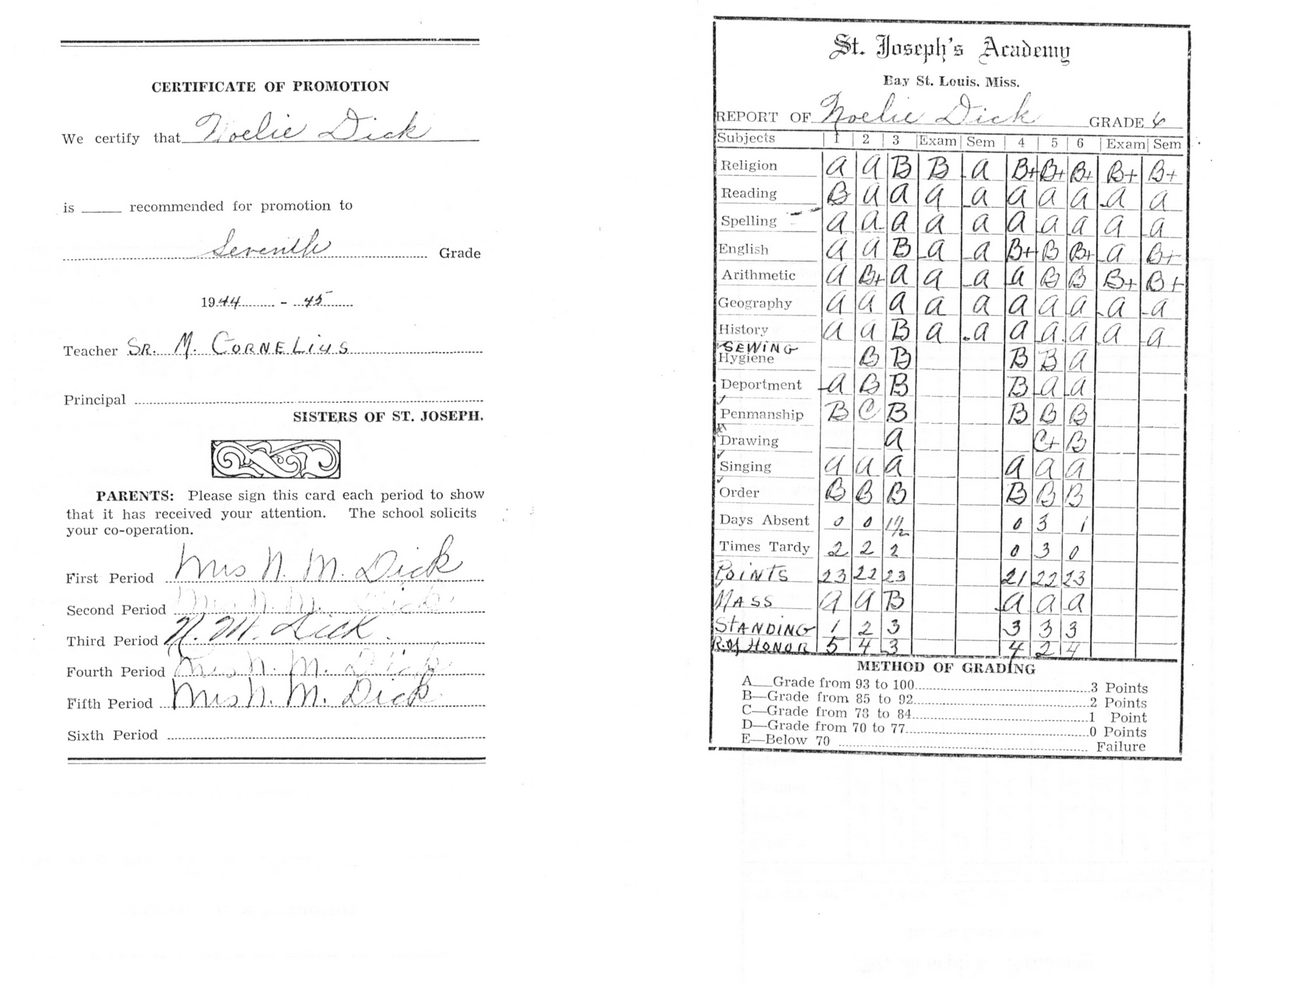 CERTIFICATE OF PROMOTION
We certify that Noelie Dick
is ____ recommended for promotion to
Seventh Grade
1944 - 45
Teacher SR. M. CORNELIUS
Principal
SISTERS OF ST. JOSEPH.
PARENTS: Please sign this card each period to show
that it has received your attention. The school solicits
your co-operation.
First Period Mrs N. M. Dick
Second Period Mrs N. M. Dick
Third Period N. M. Dick.
Fourth Period Mrs N. M. Dick
Fifth Period Mrs N. M. Dick
Sixth Period
St. Joseph's Academy
Bay St. Louis, Miss.
REPORT OF Noelie Dick GRADE 6
Subjects 1 2 3 Exam Sem 4 5 6 Exam Sem
Religion A A B B A B+ B+ B+ B+ B+
Reading B A A A A A A A A A
Spelling A A A A A A A A A A
English A A B A A B+ B B+ A B+
Arithmetic A B+ A A A A B B B+ B+
Geography A A A A A A A A A A
History A A B A A A A A A A
SEWING
Hygiene B B B B A
Deportment A B B B A A
Penmanship B C B B B B
Drawing A C+ B
Singing A A A A A A
Order B B B B B B
Days Absent 0 0 1 1/2 0 3 1
Times Tardy 2 2 2 0 3 0
POINTS 23 22 23 21 22 23
MASS A A B A A A
STANDING 1 2 3 3 3 3
R. of HONOR 5 4 3 4 2 4
METHOD OF GRADING
A—Grade from 93 to 100 3 Points
B—Grade from 85 to 92 2 Points
C—Grade from 78 to 84 1 Point
D—Grade from 70 to 77 0 Points
E—Below 70 Failure